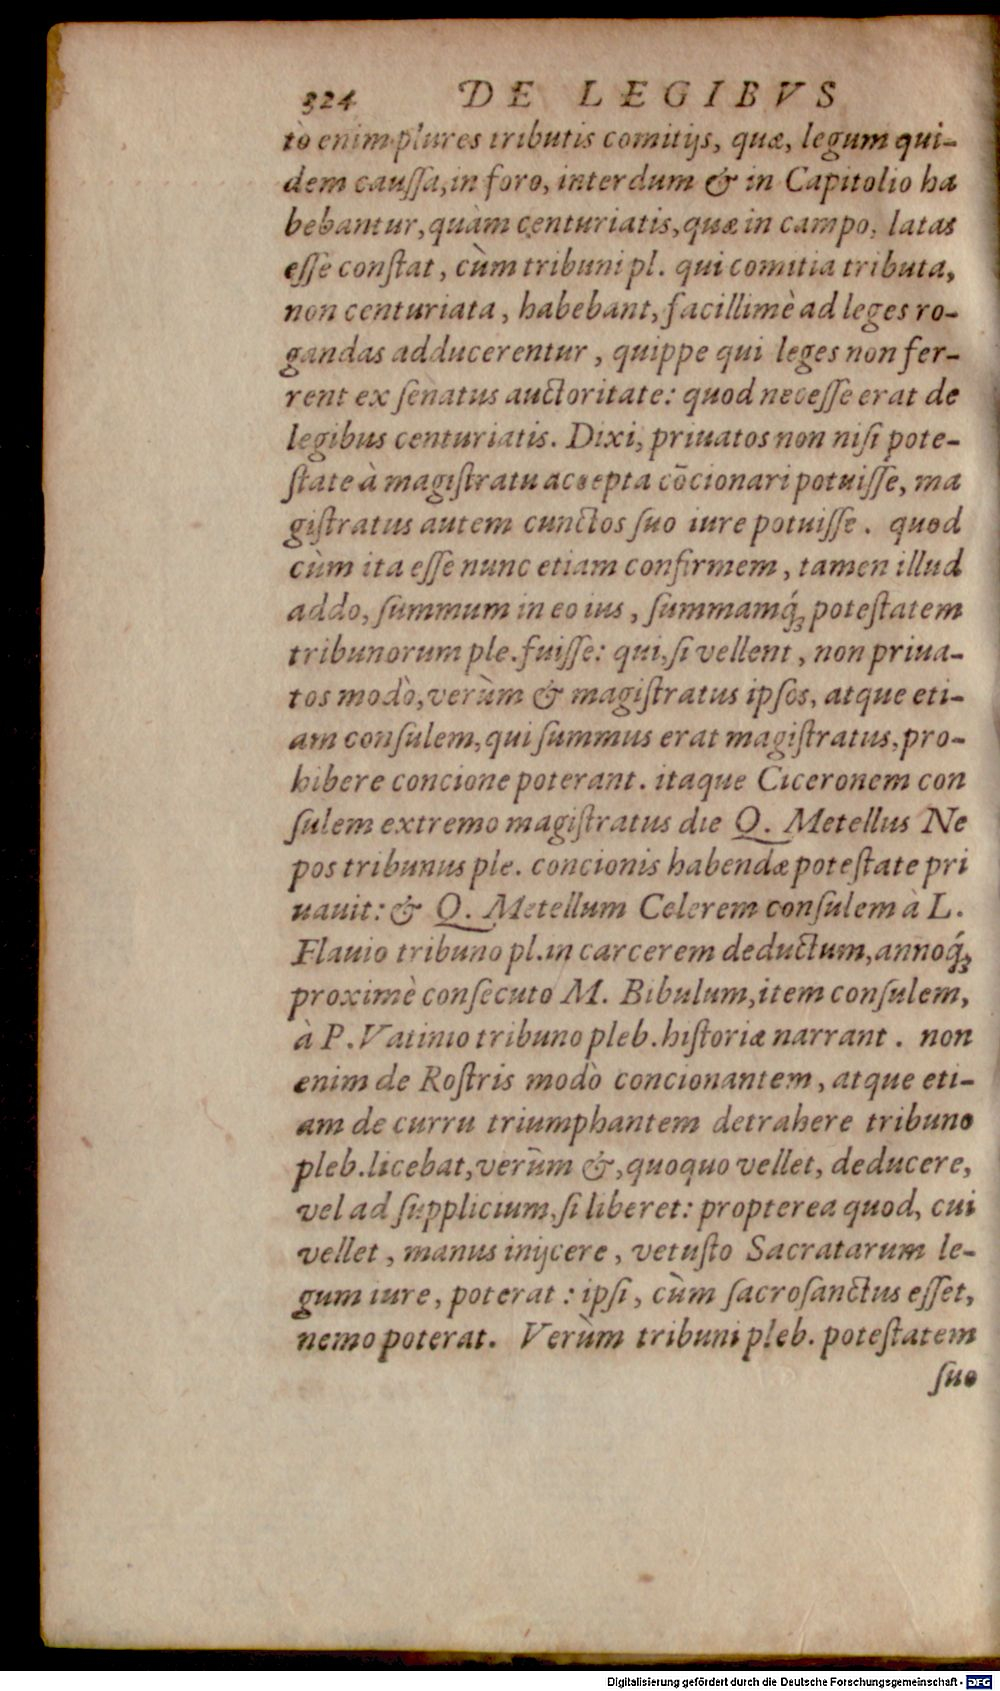 324 DE LEGIBVS
tò enim plures tributis comitijs, quæ, legum qui-
dem cauſſa, in foro, interdum & in Capitolio ha
bebantur, quàm centuriatis, quæ in campo, latas
eſſe conſtat, cùm tribuni pl. qui comitia tributa,
non centuriata, habebant, facillimè ad leges ro-
gandas adducerentur, quippe qui leges non fer-
rent ex ſenatus auctoritate: quod neceſſe erat de
legibus centuriatis. Dixi, priuatos non niſi pote-
ſtate à magiſtratu accepta cōcionari potuiſſe, ma
giſtratus autem cunctos ſuo iure potuiſſe. quod
cùm ita eſſe nunc etiam confirmem, tamen illud
addo, ſummum in eo ius, ſummamq́ꝫ poteſtatem
tribunorum ple. fuiſſe: qui, ſi vellent, non priua-
tos modò, verùm & magiſtratus ipſos, atque eti-
am conſulem, qui ſummus erat magiſtratus, pro-
hibere concione poterant. itaque Ciceronem con
ſulem extremo magiſtratus die Q. Metellus Ne
pos tribunus ple. concionis habendæ poteſtate pri
uauit: & Q. Metellum Celerem conſulem à L.
Flauio tribuno pl. in carcerem deductum, annoq́ꝫ
proximè conſecuto M. Bibulum, item conſulem,
à P. Vatinio tribuno pleb. hiſtoriæ narrant. non
enim de Roſtris modò concionantem, atque eti-
am de curru triumphantem detrahere tribuno
pleb. licebat, verùm &, quoquo vellet, deducere,
vel ad ſupplicium, ſi liberet: propterea quod, cui
vellet, manus inijcere, vetuſto Sacratarum le-
gum iure, poterat: ipſi, cùm ſacroſanctus eſſet,
nemo poterat. Verùm tribuni pleb. poteſtatem
ſuo
Digitalisierung gefördert durch die Deutsche Forschungsgemeinschaft - DFG